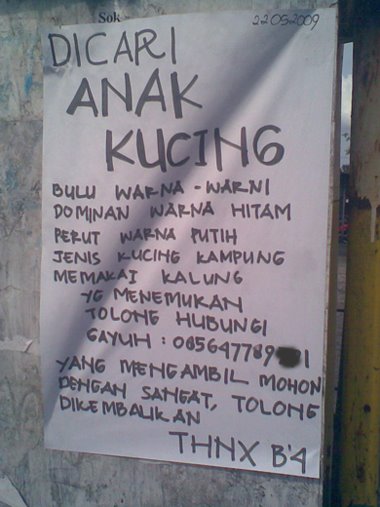 Sok
22052009
DICARI
ANAK
KUCING
BULU WARNA-WARNI
DOMINAN WARNA HITAM
PERUT WARNA PUTIH
JENIS KUCING KAMPUNG
MEMAKAI KALUNG
YG MENEMUKAN
TOLONG HUBUNGI
GAYUH : 085647789 1
YANG MENGAMBIL MOHON
DENGAN SANGAT, TOLONG
DIKEMBALIKAN
THNX B'4